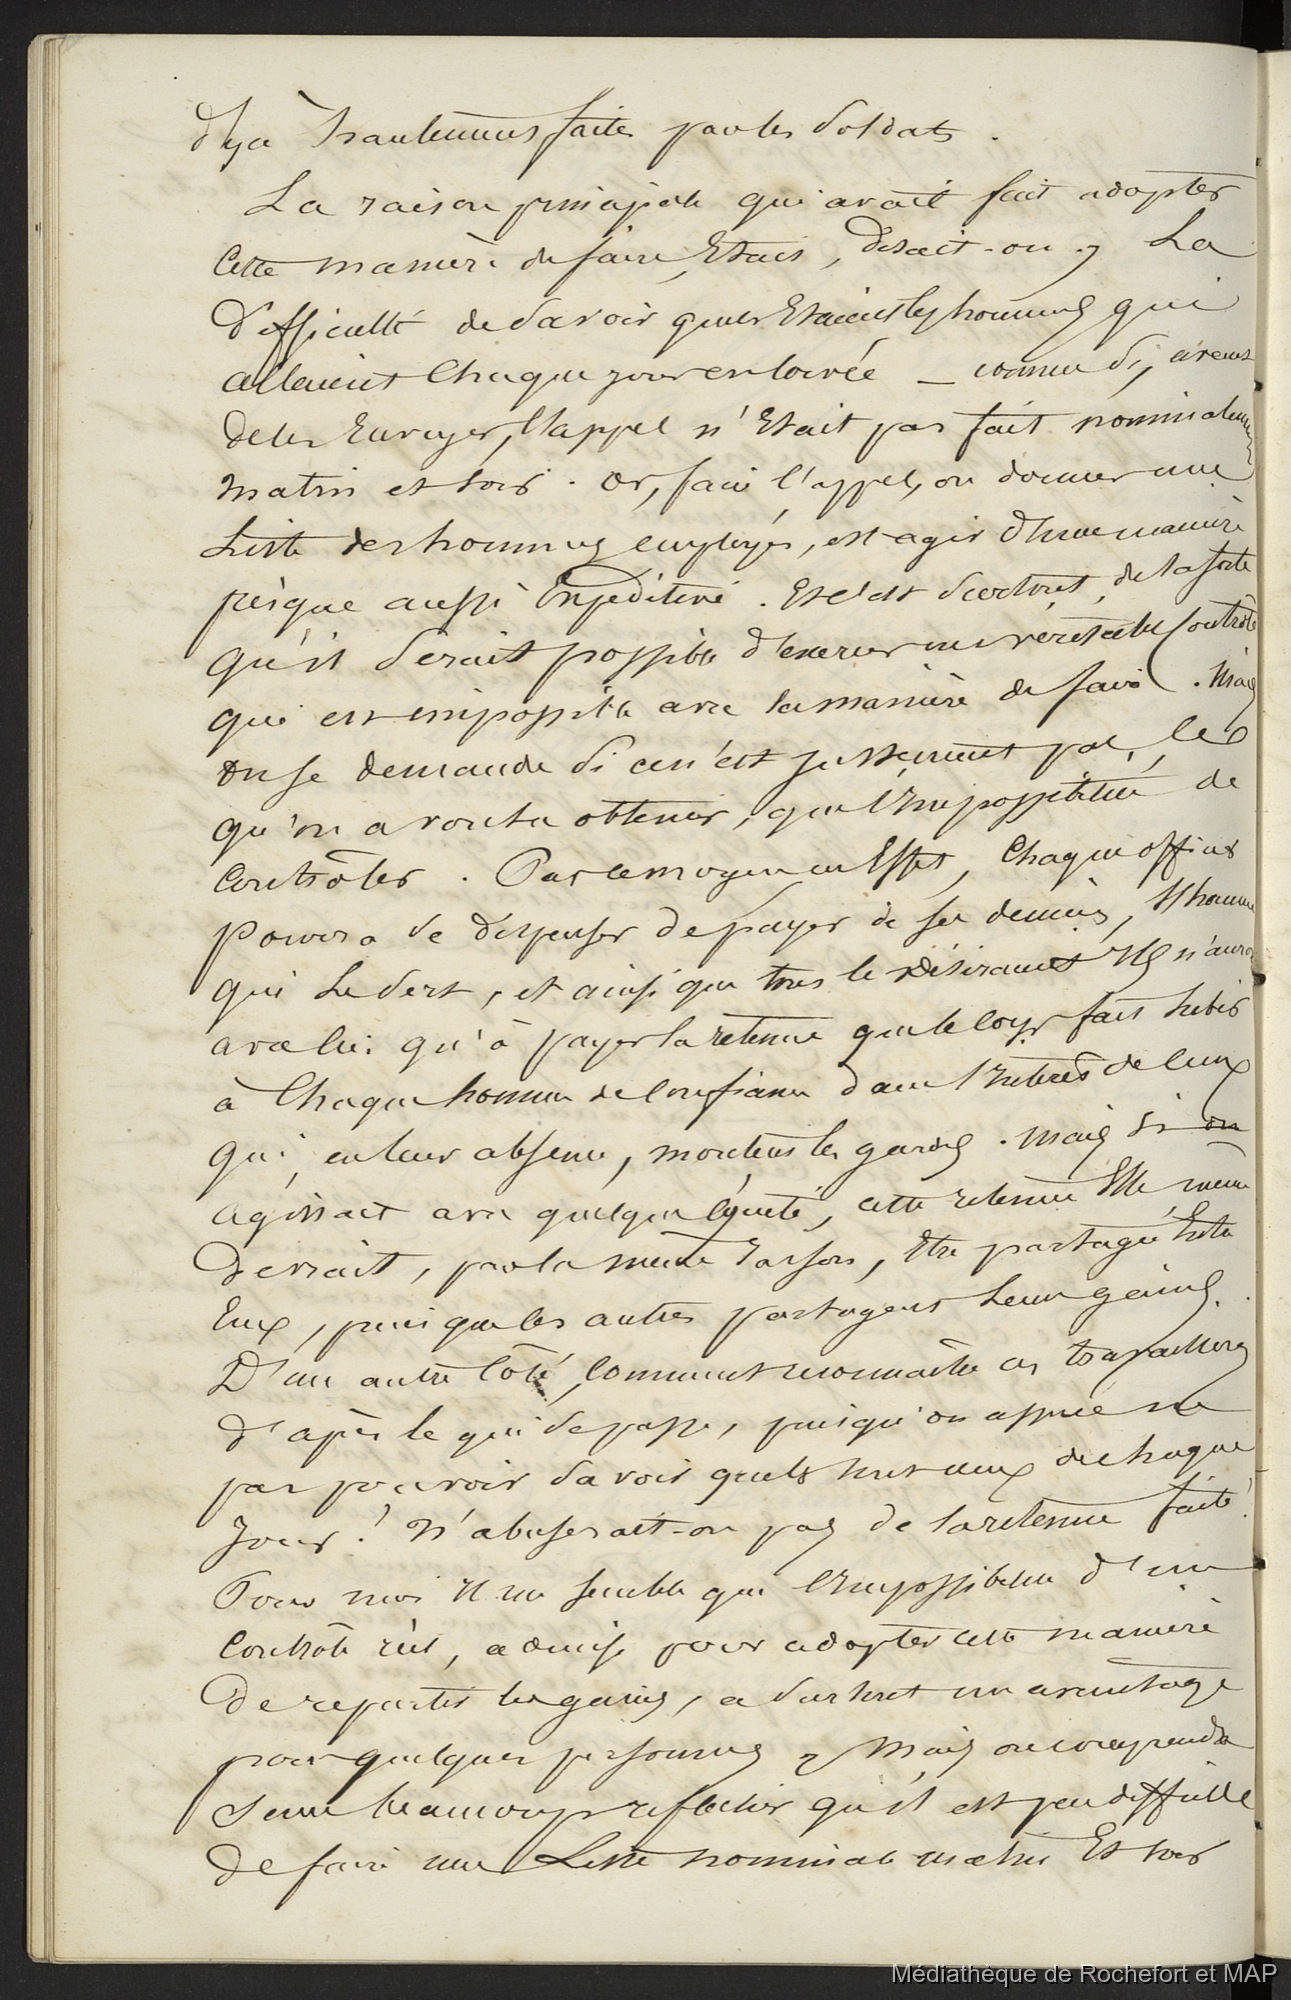 déjà hautement faites par les soldats.
La raison principale qui avait fait adopter
cette manière de faire, était, disait-on, La
difficulté de savoir quels étaient les hommes qui
allaient chaque jour en corvée — comme si, avant
de les Envoyer, l'appel n'était pas fait nominalement
matin et soir. Or, faire l'appel, ou donner une
Liste des hommes employés, est agir d'une manière
presque aussi Expéditive. Et c'est surtout, de la sorte
qu'il serait possible d'exercer un véritable Contrôle
qui est impossible avec la manière de faire. Mais
on se demande si ce n'est justement pas, ce
qu'on a voulu obtenir, que l'Impossibilité de
Contrôler. Par ce moyen en Effet, Chaque officier
pourra se dispenser de payer de ses deniers, l'homme
qui Le sert, et ainsi que tous le désiraient Ils n'auront
avec lui qu'à payer la retenue que le corps fait subir
à Chaque homme de confiance dans l'Intérêt de ceux
qui, en leur absence, montent les gardes. Mais si on
agissait avec quelque Equité, cette retenue Elle même
devrait, par la même raison, Etre partagée Entre
Eux, puisque les autres partagent Leurs gains.
D'un autre Côté, Comment reconnaître ces travailleurs
d'après ce qui se passe, puisqu'on appuie ne
pas pouvoir savoir quels sont ceux de chaque
Jour! N'abuserait-on pas de la retenue faite!
Pour moi Il me semble que l'Impossibilité d'un
Contrôle réel, admise pour adopter cette manière
De répartir les gains, a surtout un avantage
pour quelques personnes, Mais on comprendra
sans beaucoup réfléchir qu'il est peu difficile
de faire une Liste nominale matin Et soir